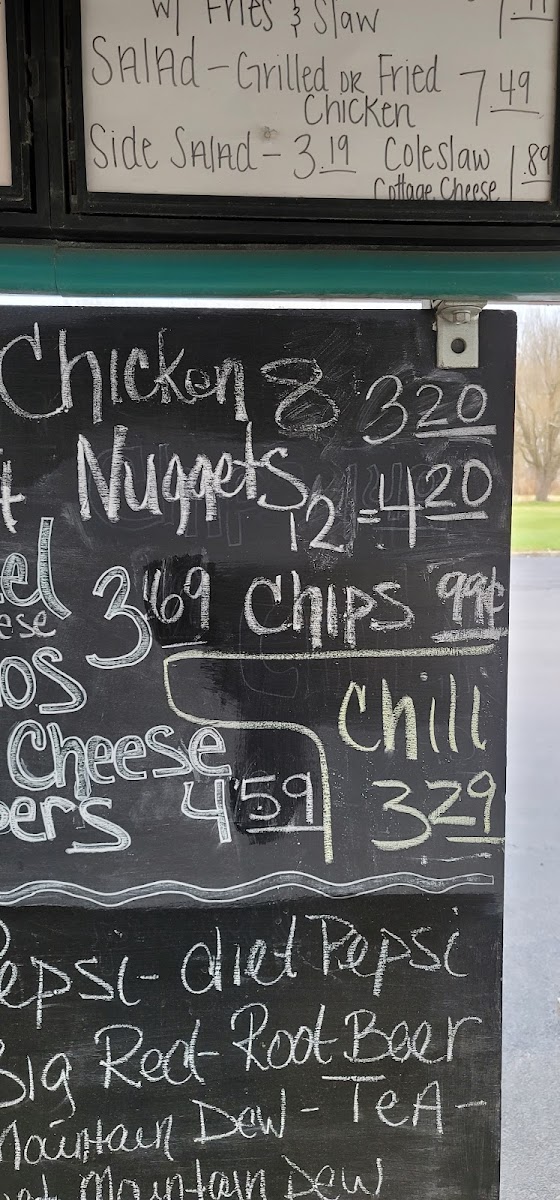 w/ Fries & Slaw
Salad - Grilled or Fried Chicken 7.49
Side Salad - 3.19 Coleslaw 1.89
Cottage Cheese
Chicken 8 3 20
Nuggets 12 = 4 20
3 69 Chips 99¢
Chili
Cheese
4 59 3 29
Pepsi - diet Pepsi
Big Red - Root Beer
Mountain Dew - TeA -
Mountain Dew